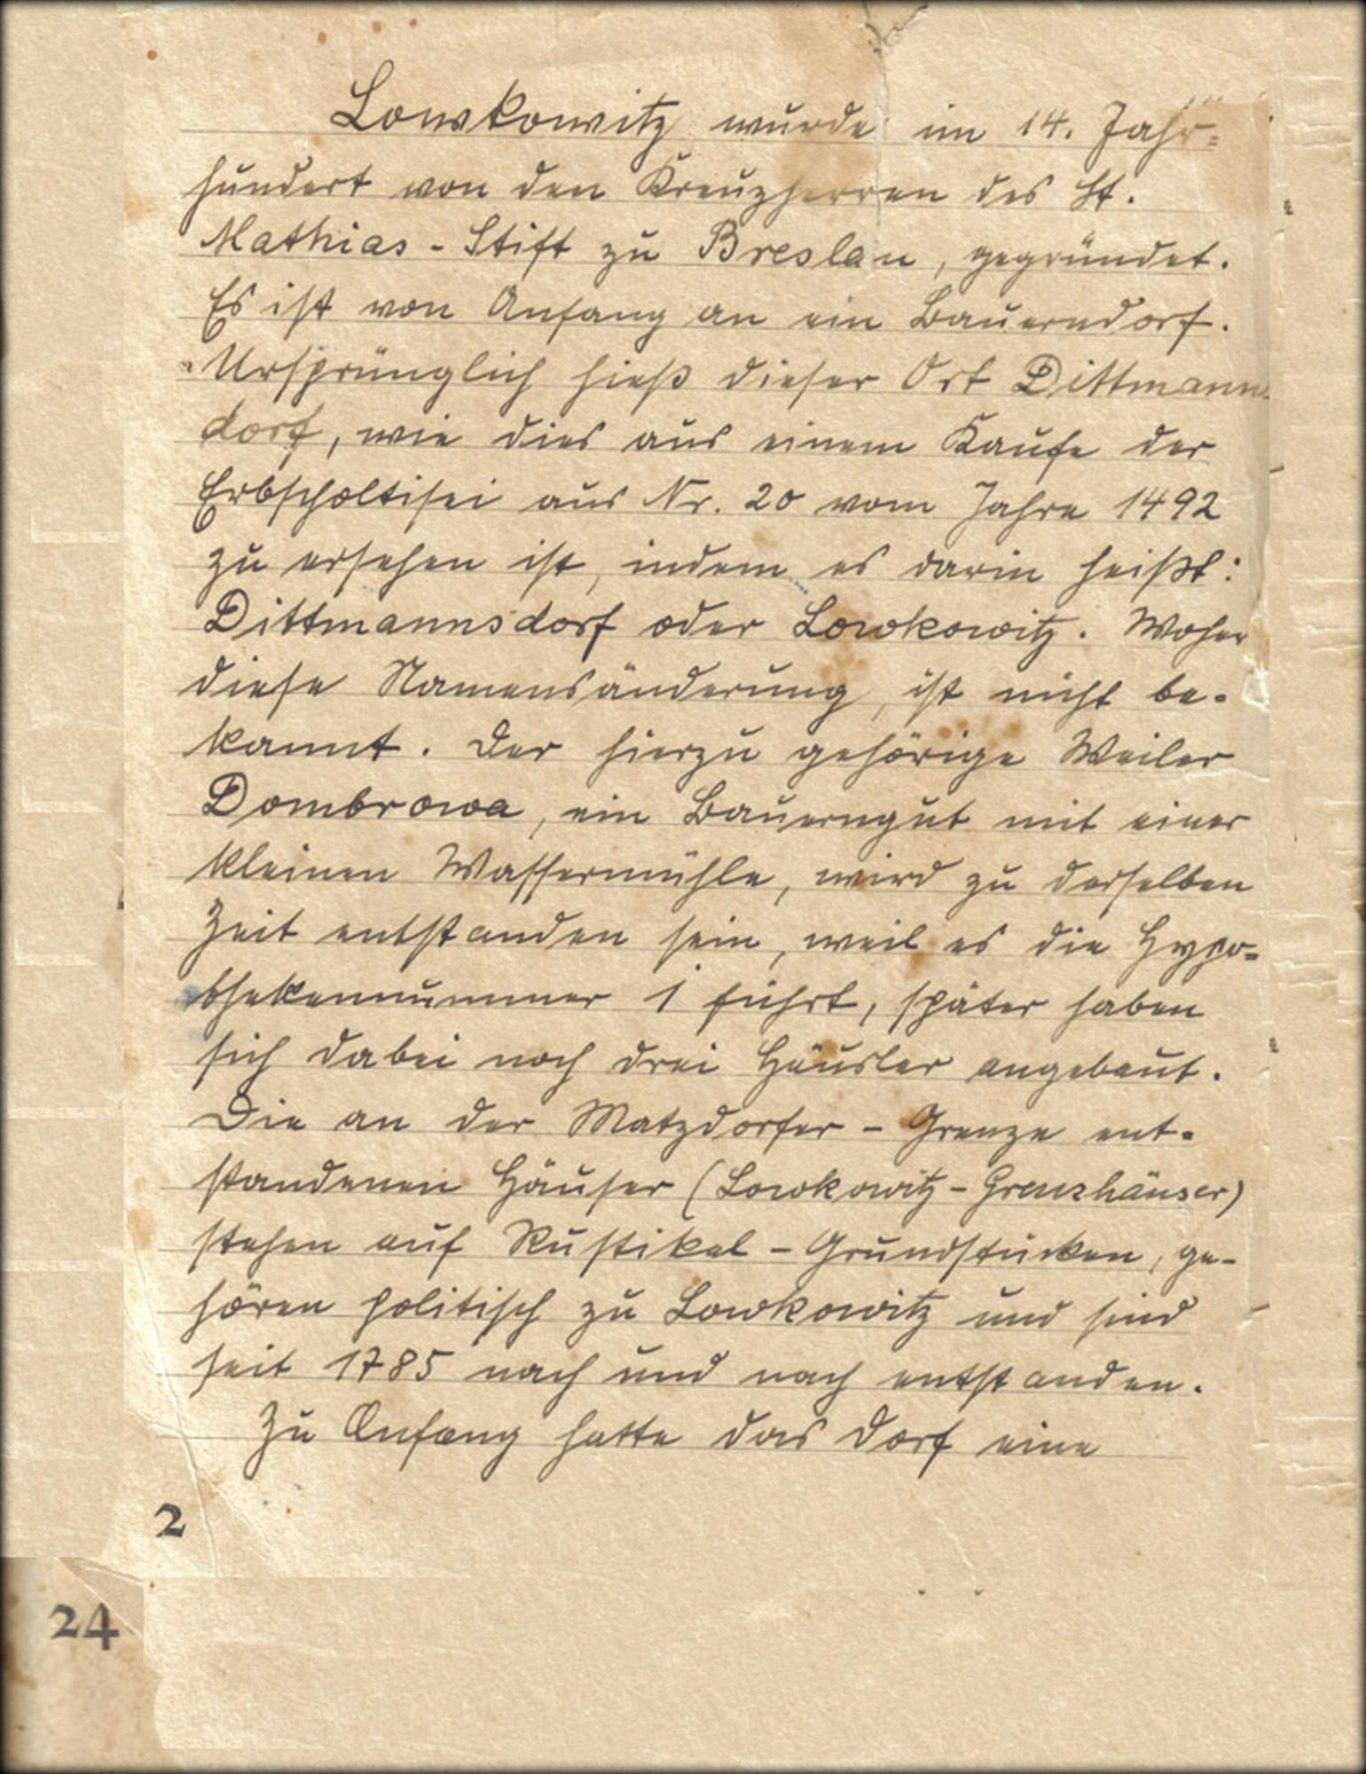 Lowkowitz wurde im 14. Jahr-
hundert von den Kreuzherren des St.
Mathias-Stift zu Breslau, gegründet.
Es ist von Anfang an ein Bauerndorf.
Ursprünglich hieß dieser Ort Dittmanns-
dorf, wie dies aus einem Kaufe der
Erbscholtisei aus Nr. 20 vom Jahre 1492
zu ersehen ist, indem es darin heißt:
Dittmannsdorf oder Lowkowitz. Woher
diese Namensänderung, ist nicht be-
kannt. Der hierzu gehörige Weiler
Dombrowa, ein Bauerngut mit einer
kleinen Wassermühle, wird zu derselben
Zeit entstanden sein, weil es die Hypo-
thekennummer 1 führt, später haben
sich dabei noch drei Häusler angebaut.
Die an der Matzdorfer-Grenze ent-
standenen Häuser (Lowkowitz-Grenzhäuser)
stehen auf Rustikal-Grundstücken, ge-
hören politisch zu Lowkowitz und sind
seit 1785 nach und nach entstanden.
Zu Anfang hatte das Dorf eine
2
24